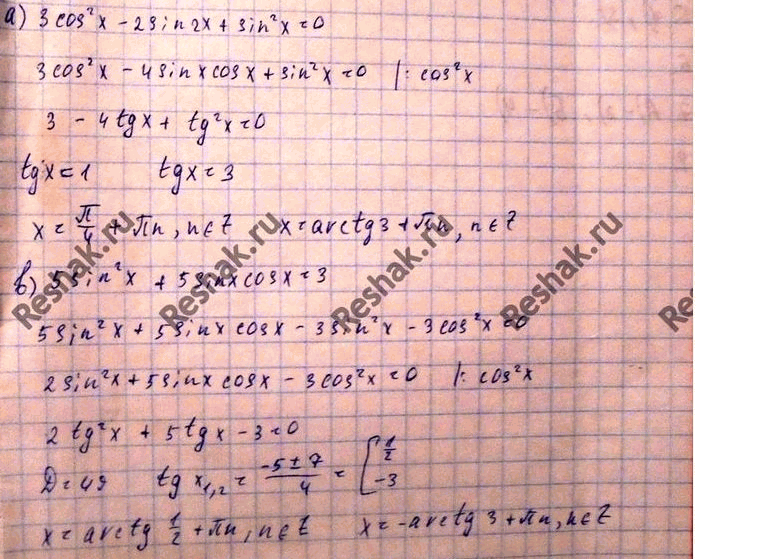 а) 3cos²x - 2sin2x + sin²x = 0
3cos²x - 4sinxcosx + sin²x = 0 |: cos²x
3 - 4tgx + tg²x = 0
tgx = 1 tgx = 3
x = π/4 + πn, n∈Z x = arctg3 + πn, n∈Z
в) 5sin²x + 5sinxcosx = 3
5sin²x + 5sinxcosx - 3sin²x - 3cos²x = 0
2sin²x + 5sinxcosx - 3cos²x = 0 |: cos²x
2tg²x + 5tgx - 3 = 0
D = 49 tgx₁,₂ = (-5±7)/4 = [1/2 -3
x = arctg 1/2 + πn, n∈Z x = -arctg3 + πn, n∈Z
Reshak.ru
Reshak.ru
Reshak.ru
Reshak.ru